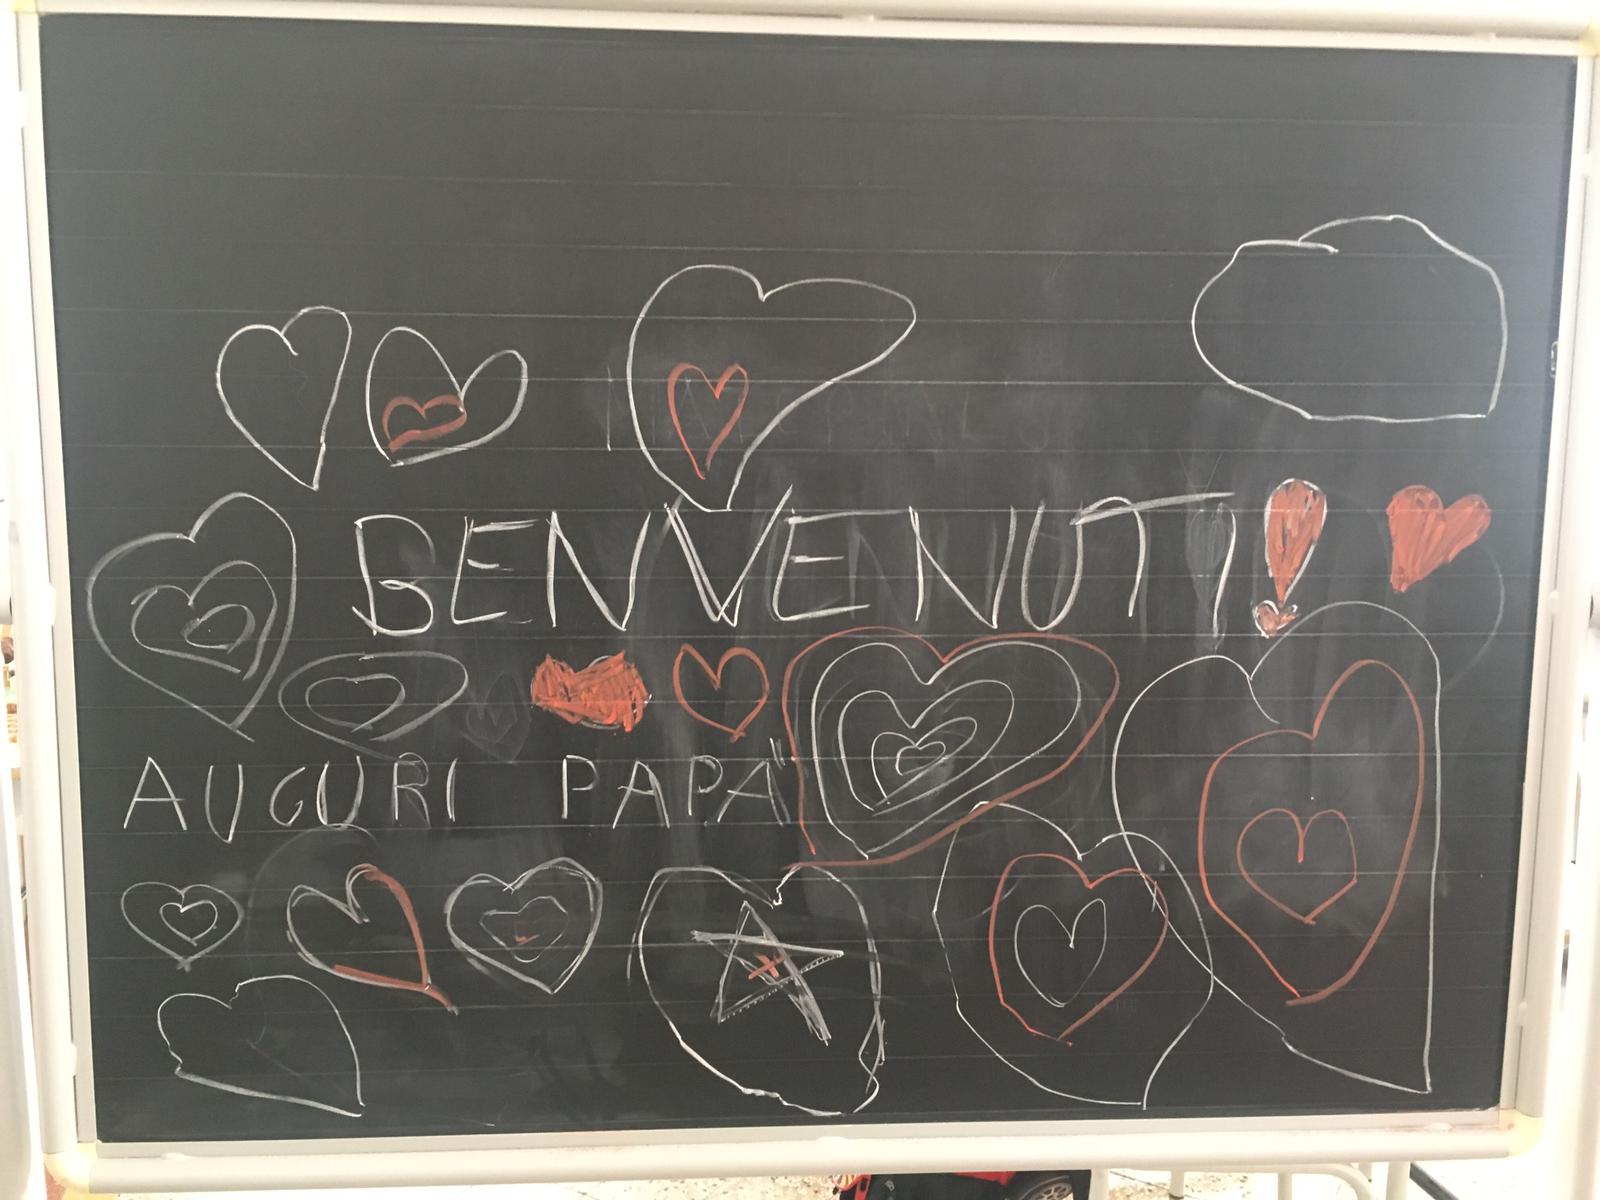 BENVENUTI!
AUGURI PAPA'